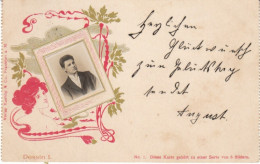 Herzlichen
Glückwunsch
zum Geburtstag
sendet
August
No. 1. Diese Karte gehört zu einer Serie von 6 Bildern.